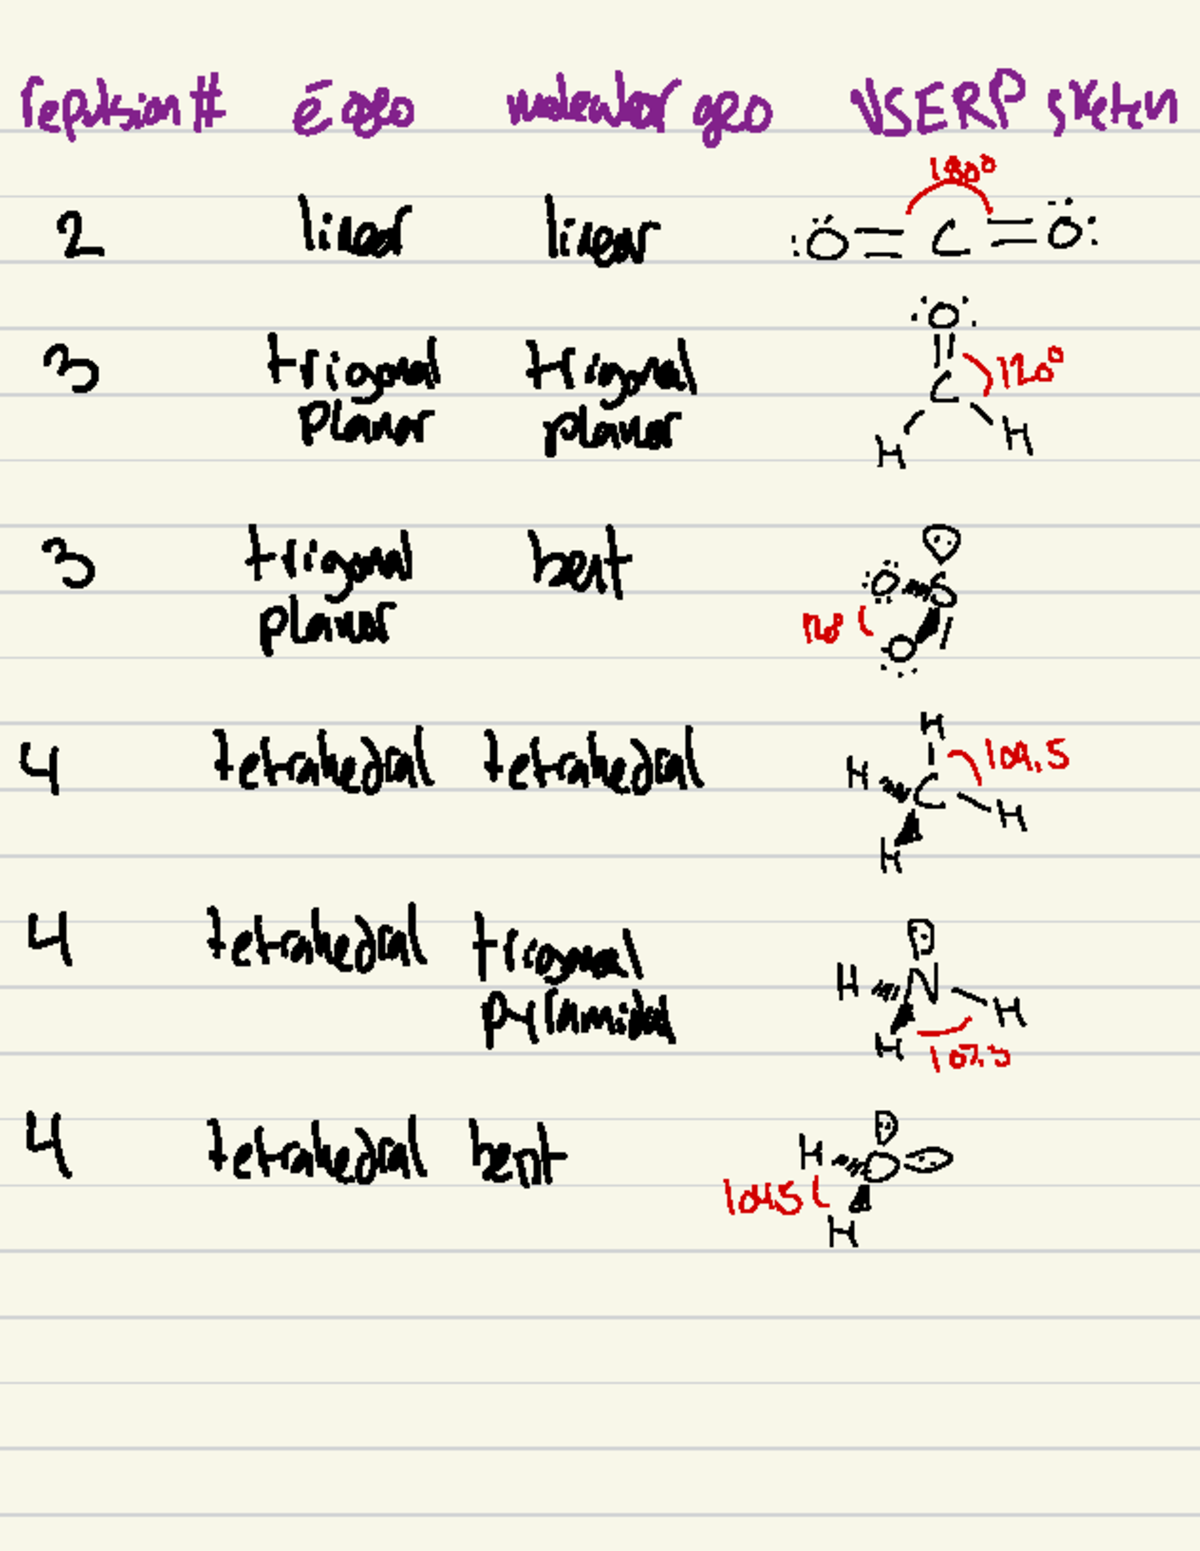 repulsion # ē geo molecular geo VSERP sketch
180°
2 linear linear :Ö=C=Ö:
:O:
3 trigonal trigonal C 120°
planar planar H H
3 trigonal bent :O S
planar O
H
4 tetrahedral tetrahedral H C 109.5
H
H
4 tetrahedral trigonal
pyramidal H N H
H 107.3
4 tetrahedral bent H O
104.5
H